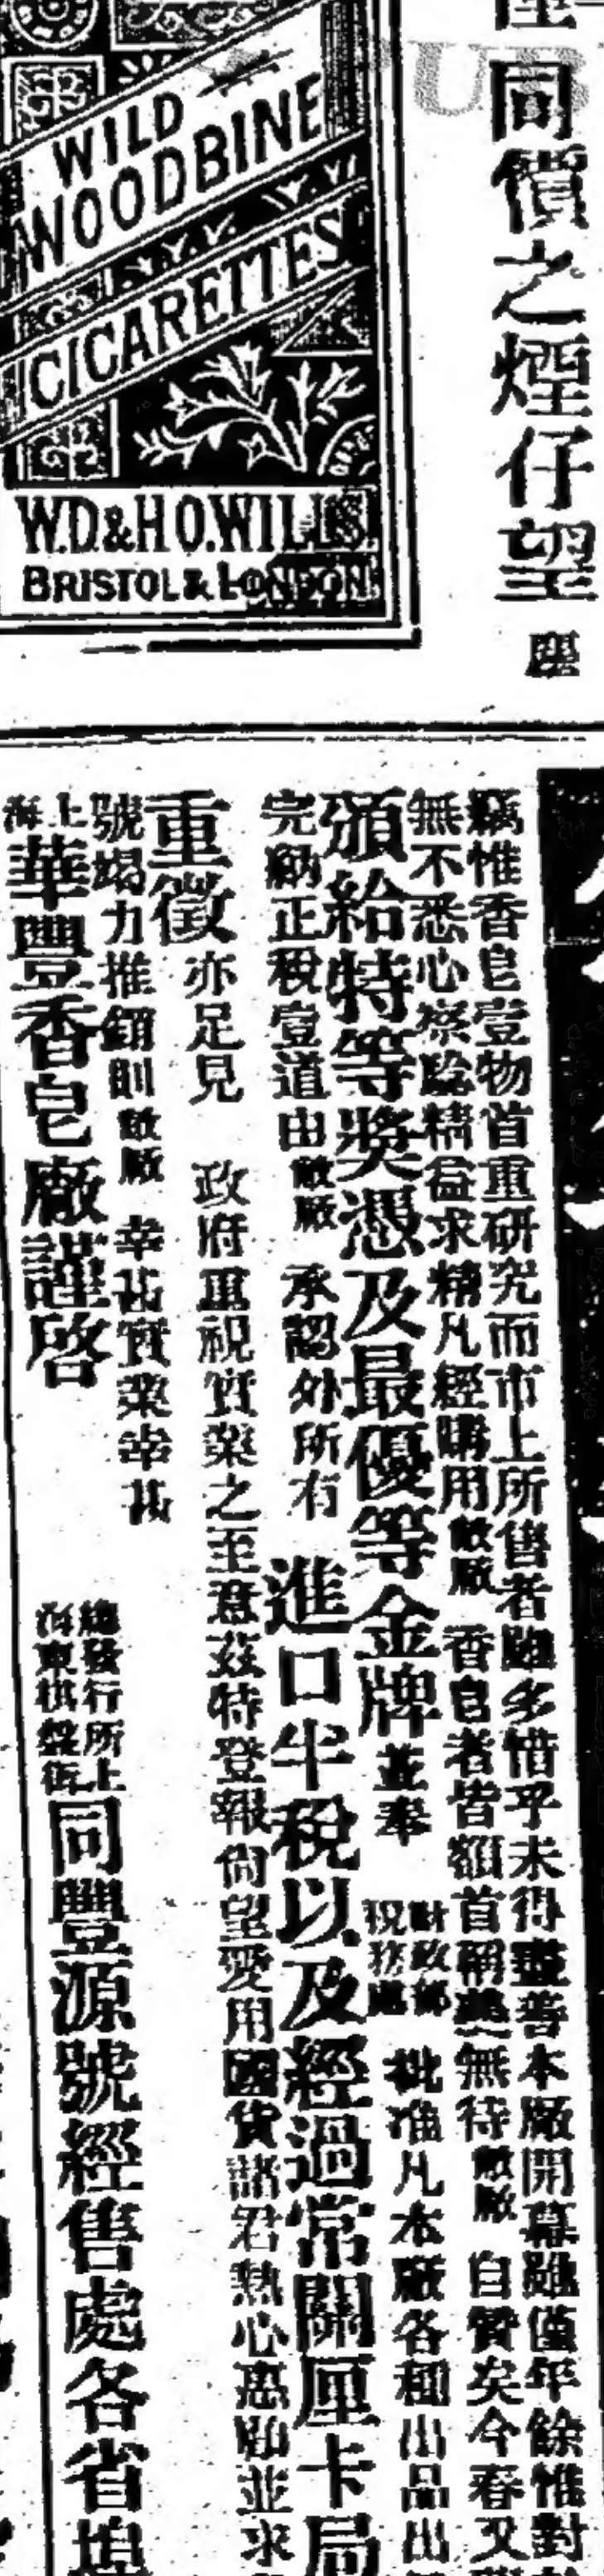 WILD
WOODBINE
CIGARETTES
W.D.&H.O.WILLS
BRISTOL & LONDON
同價之煙仔望
竊惟香皂壹物首重研究而市上所售者雖多惜乎未得盡善本廠開幕雖僅年餘惟對
無不悉心察驗精益求精凡經購用敝廠 香皂者皆額首稱美無待敝廠 自贊矣今春又
頒給特等獎憑及最優等金牌並奉 財政部稅務處 批准凡本廠各種出品出
完納正稅壹道由敝廠 承認外所有 進口半稅以及經過常關厘卡局
重徵亦足見 政府重視實業之至意茲特登報尚望愛用國貨諸君熱心惠顧並求
號竭力推銷則敝廠 幸甚實業幸甚
上海華豐香皂廠謹啓
總發行所上海東棋盤街同豐源號經售處各省埠